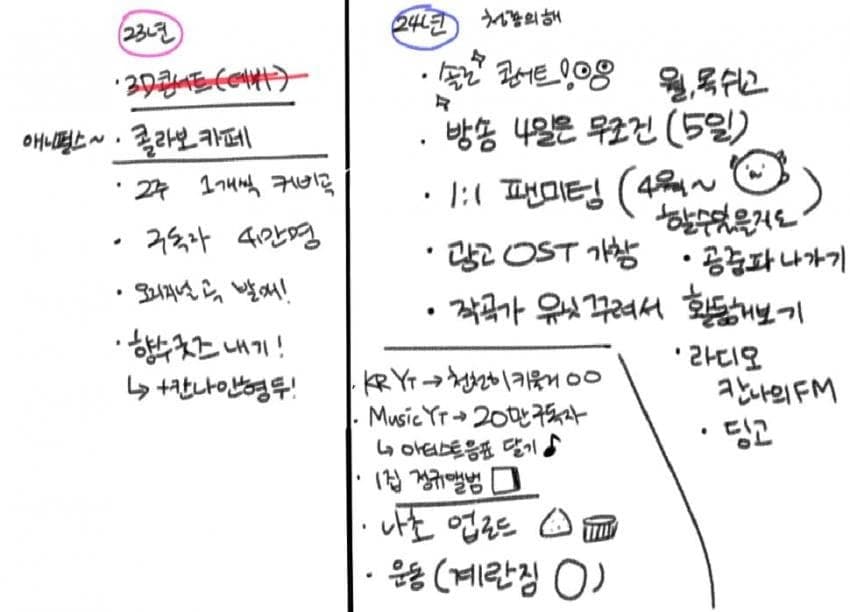 23년
· 3D콘서트(데뷔)
애니플러스~ · 콜라보카페
· 2주 1개씩 커버곡
· 구독자 4만명
· 오리지널 곡 발매!
· 향수굿즈 내기!
↳ +칸나인형두!
24년 청룡의해
· 솔로 콘서트!
월,목 쉬고
· 방송 4일은 무조건 (5일)
· 1:1 팬미팅 (4월~
할수있을지도)
· 광고 OST 가창
· 공중파 나가기
· 작곡가 유닛꾸려서 활동해보기
· 라디오
칸나의FM
· 딩고
· KR YT → 천천히키울게 ㅇㅇ
· Music YT → 20만구독자
↳ 아티스트음표 달기♪
· 1집 정규앨범
· 나초 업로드
· 운동 (계란찜 )